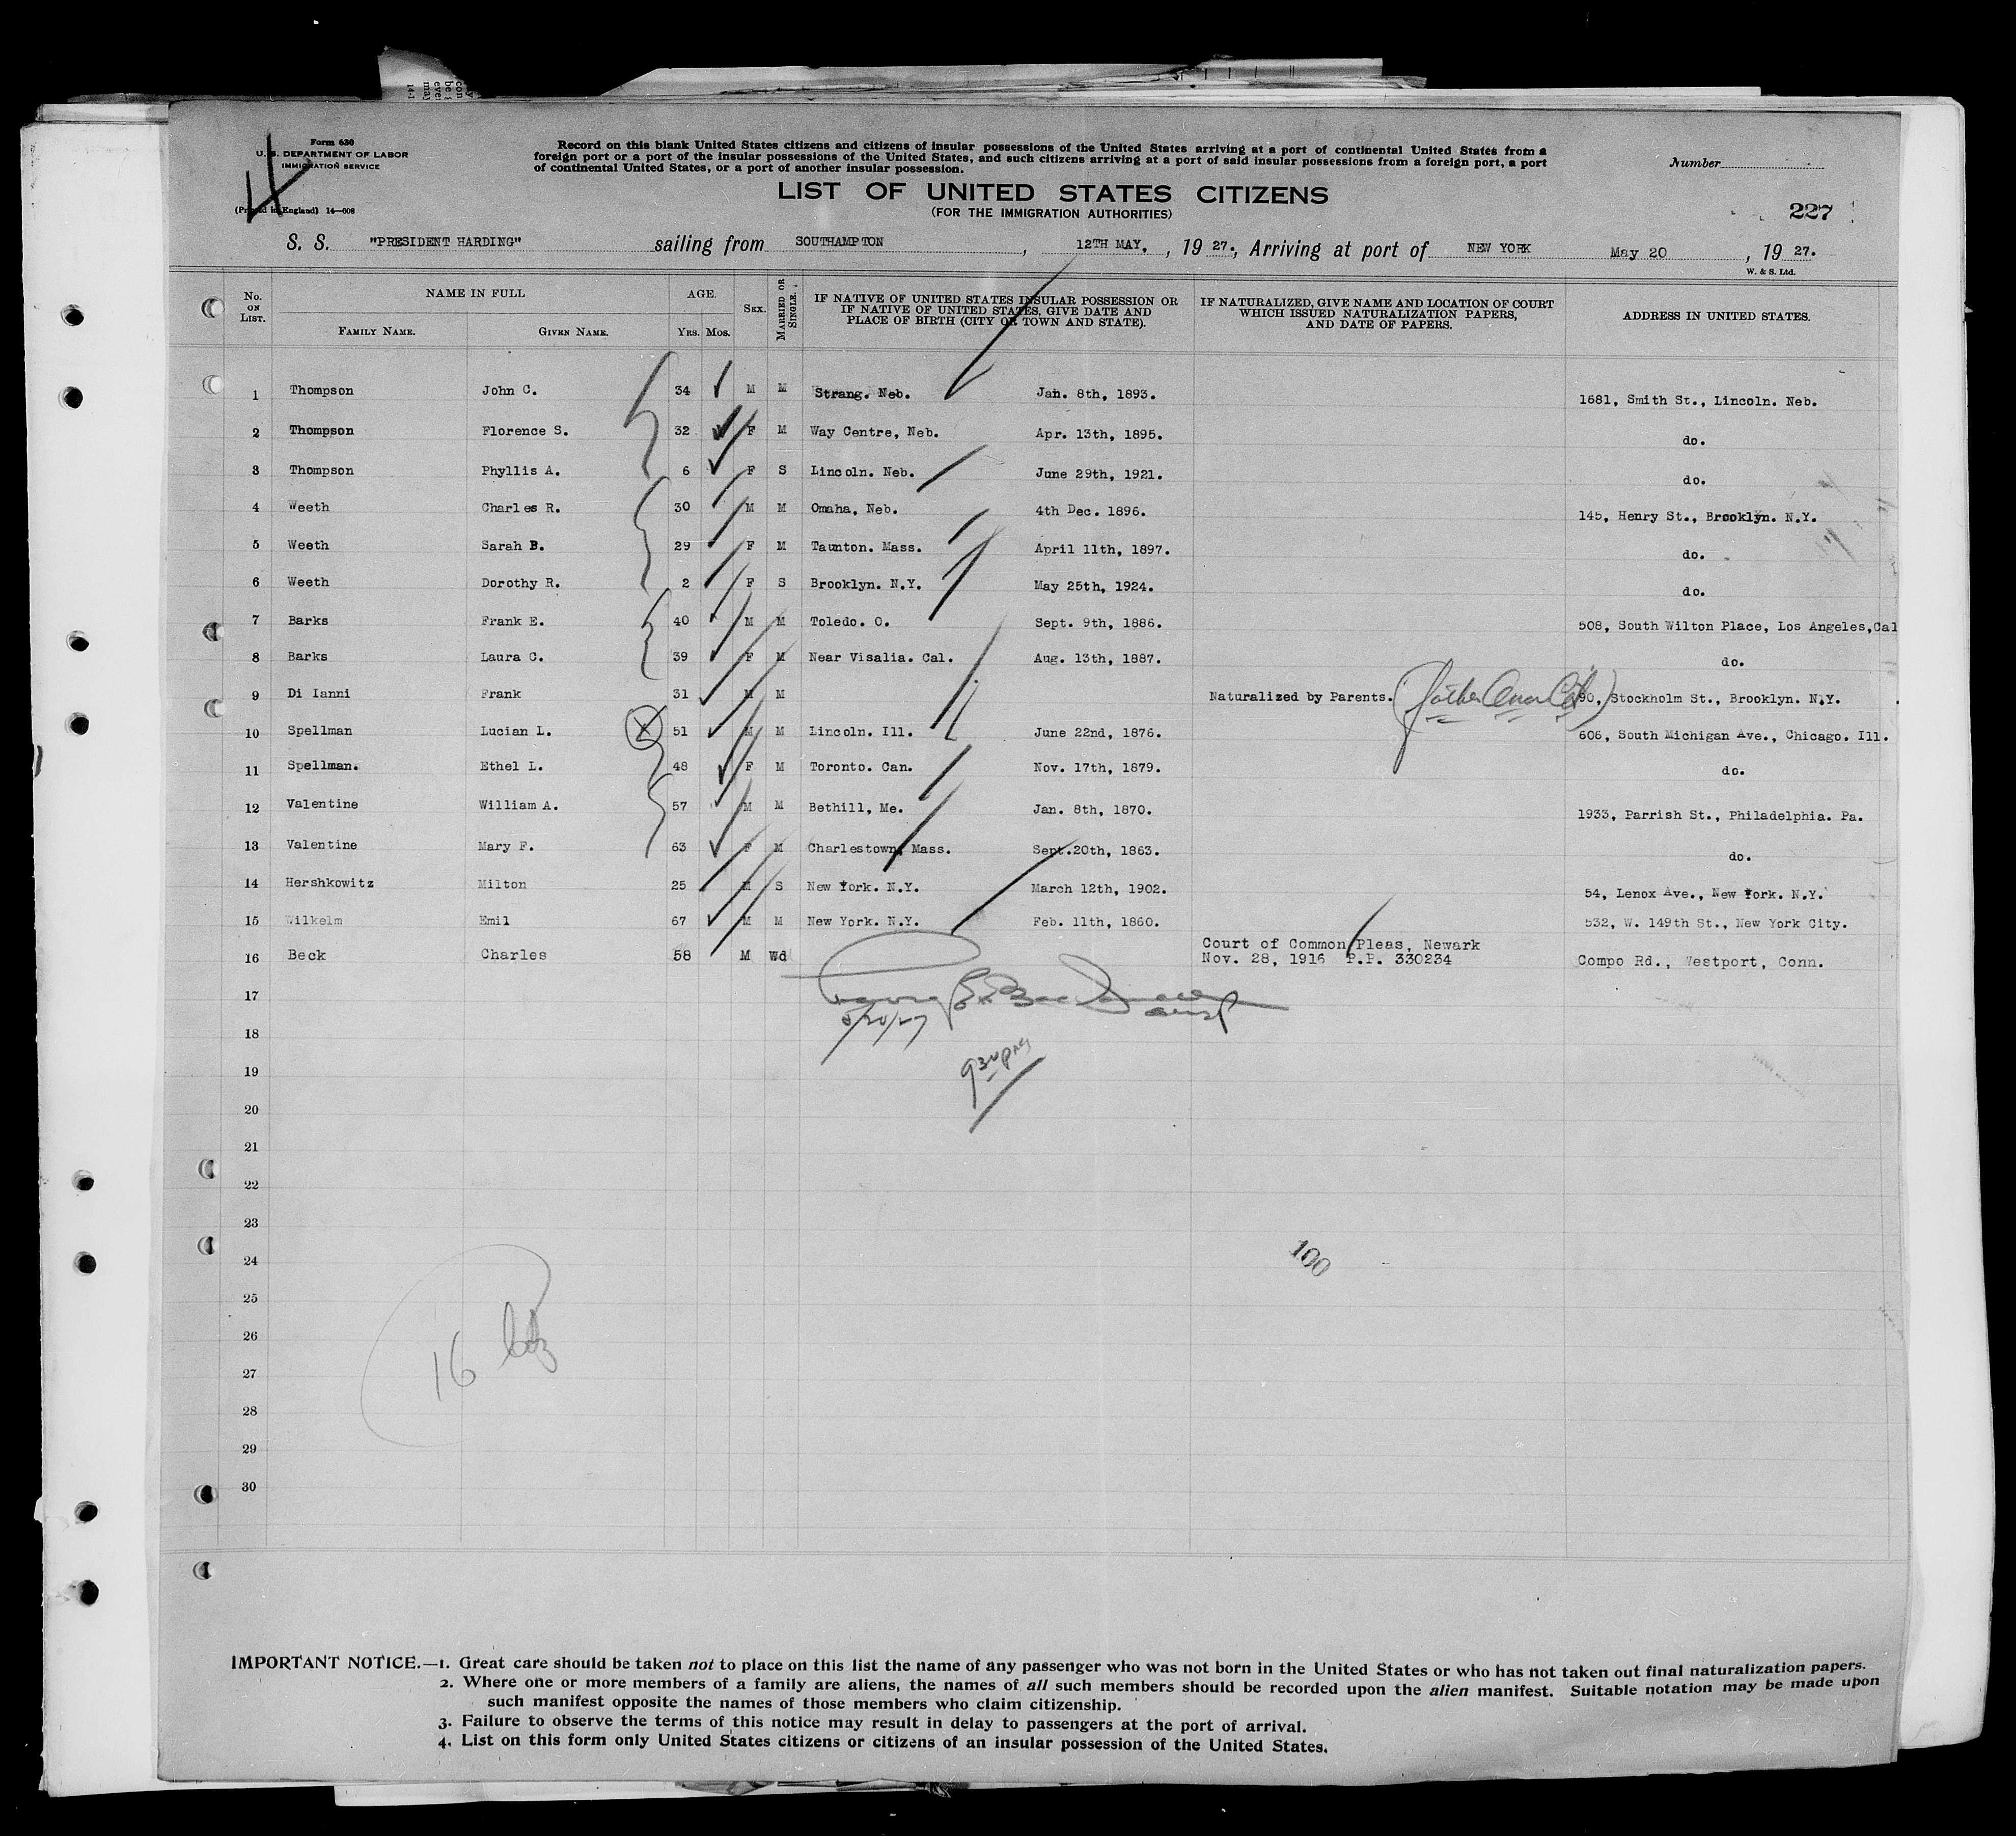 Form 630
U. S. DEPARTMENT OF LABOR
IMMIGRATION SERVICE
(Printed in England) 14—608
Record on this blank United States citizens and citizens of insular possessions of the United States arriving at a port of continental United States from a
foreign port or a port of the insular possessions of the United States, and such citizens arriving at a port of said insular possessions from a foreign port, a port
of continental United States, or a port of another insular possession.
Number
LIST OF UNITED STATES CITIZENS
(FOR THE IMMIGRATION AUTHORITIES)
227
S. S. "PRESIDENT HARDING" sailing from SOUTHAMPTON, 12TH MAY, 19 27., Arriving at port of NEW YORK May 20, 19 27.
W. & S. Ltd.
No. ON LIST. NAME IN FULL AGE. SEX. MARRIED OR SINGLE. IF NATIVE OF UNITED STATES INSULAR POSSESSION OR IF NATIVE OF UNITED STATES, GIVE DATE AND PLACE OF BIRTH (CITY OR TOWN AND STATE). IF NATURALIZED, GIVE NAME AND LOCATION OF COURT WHICH ISSUED NATURALIZATION PAPERS, AND DATE OF PAPERS. ADDRESS IN UNITED STATES.
FAMILY NAME. GIVEN NAME. YRS. MOS.
1 Thompson John C. 34 M M Strang. Neb. Jan. 8th, 1893. 1681, Smith St., Lincoln. Neb.
2 Thompson Florence S. 32 F M Way Centre, Neb. Apr. 13th, 1895. do.
3 Thompson Phyllis A. 6 F S Lincoln. Neb. June 29th, 1921. do.
4 Weeth Charles R. 30 M M Omaha, Neb. 4th Dec. 1896. 145, Henry St., Brooklyn. N.Y.
5 Weeth Sarah B. 29 F M Taunton. Mass. April 11th, 1897. do.
6 Weeth Dorothy R. 2 F S Brooklyn. N.Y. May 25th, 1924. do.
7 Barks Frank E. 40 M M Toledo. O. Sept. 9th, 1886. 508, South Wilton Place, Los Angeles,Cal
8 Barks Laura C. 39 F M Near Visalia. Cal. Aug. 13th, 1887. do.
9 Di Ianni Frank 31 M M Naturalized by Parents. 90, Stockholm St., Brooklyn. N.Y.
10 Spellman Lucian L. 51 M M Lincoln. Ill. June 22nd, 1876. 606, South Michigan Ave., Chicago. Ill.
11 Spellman. Ethel L. 48 F M Toronto. Can. Nov. 17th, 1879. do.
12 Valentine William A. 57 M M Bethill, Me. Jan. 8th, 1870. 1933, Parrish St., Philadelphia. Pa.
13 Valentine Mary F. 63 F M Charlestown, Mass. Sept.20th, 1863. do.
14 Hershkowitz Milton 25 M S New York. N.Y. March 12th, 1902. 54, Lenox Ave., New York. N.Y.
15 Wilkelm Emil 67 M M New York. N.Y. Feb. 11th, 1860. 532, W. 149th St., New York City.
16 Beck Charles 58 M Wd Court of Common Pleas, Newark Nov. 28, 1916 P.P. 330234 Compo Rd., Westport, Conn.
17
5/20/27
18
19
930 PM
20
21
22
23
24
100
25
26
16
27
28
29
30
IMPORTANT NOTICE.—1. Great care should be taken not to place on this list the name of any passenger who was not born in the United States or who has not taken out final naturalization papers.
2. Where one or more members of a family are aliens, the names of all such members should be recorded upon the alien manifest. Suitable notation may be made upon
such manifest opposite the names of those members who claim citizenship.
3. Failure to observe the terms of this notice may result in delay to passengers at the port of arrival.
4. List on this form only United States citizens or citizens of an insular possession of the United States.